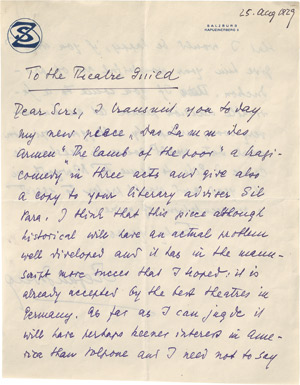 SZ
25. Aug 1929
SALZBURG
KAPUZINERBERG 5
To the Theatre Guild
Dear Sirs, I transmit you to day
my new piece „Das Lamm des
Armen" "The lamb of the poor" a tragi-
comedy in three acts and give also
a copy to your literary adviser Sil
Vara. I think that this piece although
historical will have an actual problem
well developed and it has in the manu-
script more succes that I hoped; it is
already accepted by the best theatres in
Germany. As far as I can judge it
will have perhaps keener interest in Ame-
rica than Volpone and I need not to say